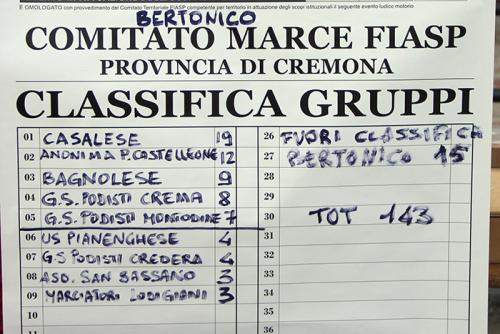 È OMOLOGATO con provvedimento del Comitato Territoriale FIASP competente per territorio in attuazione degli scopi istituzionali il seguente evento ludico motorio
BERTONICO
COMITATO MARCE FIASP
PROVINCIA DI CREMONA
CLASSIFICA GRUPPI
01 CASALESE 19
02 ANONIMA P. CASTELLEONE 12
03 BAGNOLESE 9
04 G.S. PODISTI CREMA 8
05 G.S. PODISTI MONTODINE 7
06 US PIANENGHESE 4
07 G.S PODISTI CREDERA 4
08 ASD. SAN BASSANO 3
09 MARCIATORI LODIGIANI 3
10
11
26 FUORI CLASSIFICA
27 BERTONICO 15
28
29
30 TOT 143
31
32
33
34
35
36